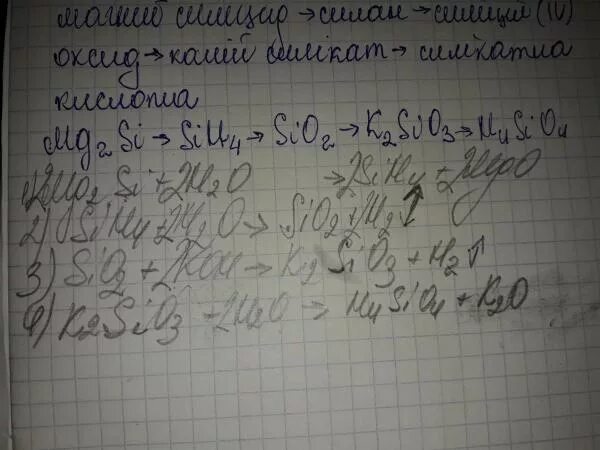 магній силіцид → силан → силіцій (IV)
оксид → калій силікат → силікатна
кислота
Mg₂Si → SiH₄ → SiO₂ → K₂SiO₃ → H₄SiO₄
1) 2Mg₂Si + 2H₂O → 2SiH₄ + 2MgO
2) SiH₄ + 2H₂O → SiO₂ + 2H₂↑
3) SiO₂ + 2KOH → K₂SiO₃ + H₂↑
4) K₂SiO₃ + 2H₂O → H₄SiO₄ + K₂O